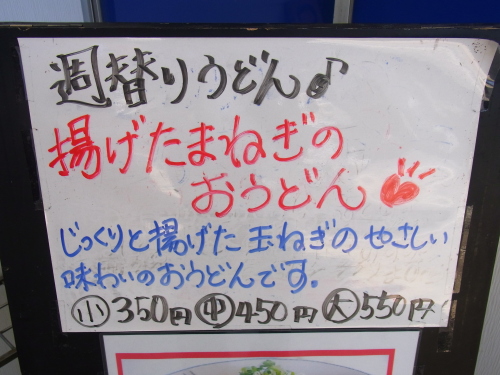 週替りうどん♪
揚げたまねぎの
おうどん
じっくりと揚げた玉ねぎのやさしい
味わいのおうどんです。
小350円中450円大550円